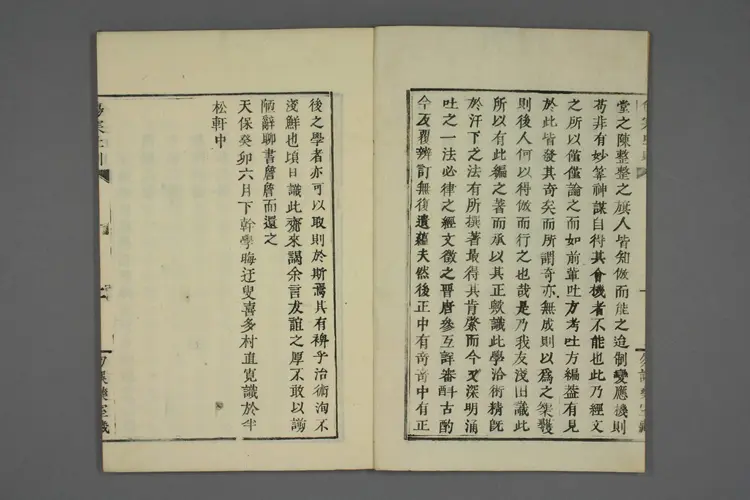 堂之陳整整之旗人皆知倣而能之迨制變應機則
苟非有妙筭神謀自得其會機者不能也此乃經文
之所以僅僅論之而如前輩吐方考吐方編葢有見
於此皆發其奇矣而所謂奇亦無成則以爲之榘矱
則後人何以得倣而行之也哉是乃我友淺田識此
所以有此編之著而承以其正歟識此學洽術精旣
於汗下之法有所撰著最得其肯綮而今又深明涌
吐之一法必律之經文徵之晋唐參互詳審斟古酌
今反覆辨訂無復遺蘊夫然後正中有奇奇中有正
後之學者亦可以取則於斯焉其有裨乎治術洵不
淺鮮也頃日識此齎來謁余言友誼之厚不敢以謭
陋辭聊書詹詹而還之
天保癸卯六月下幹學晦迂叟喜多村直寬識於半
松軒中